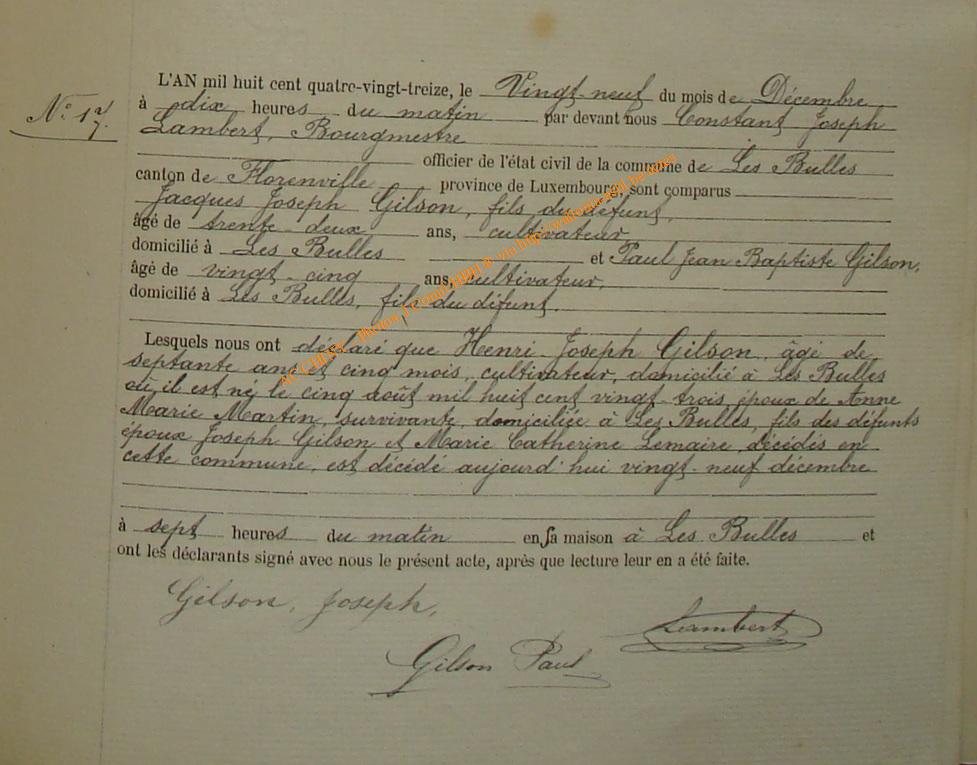 L'AN mil huit cent quatre-vingt-treize, le Vingt-neuf du mois de Décembre
N° 17.
à dix heures du matin par devant nous Constant Joseph
Lambert, Bourgmestre
officier de l'état civil de la commune de Les Bulles
canton de Florenville province de Luxembourg, sont comparus
Jacques Joseph Gilson, fils du défunt,
âgé de trente-deux ans, cultivateur
domicilié à Les Bulles et Paul Jean Baptiste Gilson,
âgé de vingt-cinq ans, cultivateur,
domicilié à Les Bulles, fils du défunt.
Lesquels nous ont déclaré que Henri-Joseph Gilson, âgé de
septante ans et cinq mois, cultivateur, domicilié à Les Bulles
où il est né le cinq août mil huit cent vingt-trois, époux de Anne
Marie Martin, survivante, domiciliée à Les Bulles, fils des défunts
époux Joseph Gilson et Marie Catherine Lemaire, décédés en
cette commune, est décédé aujourd'hui vingt-neuf décembre
à sept heures du matin en sa maison à Les Bulles et
ont les déclarants signé avec nous le présent acte, après que lecture leur en a été faite.
Gilson, Joseph,
Lambert
Gilson Paul